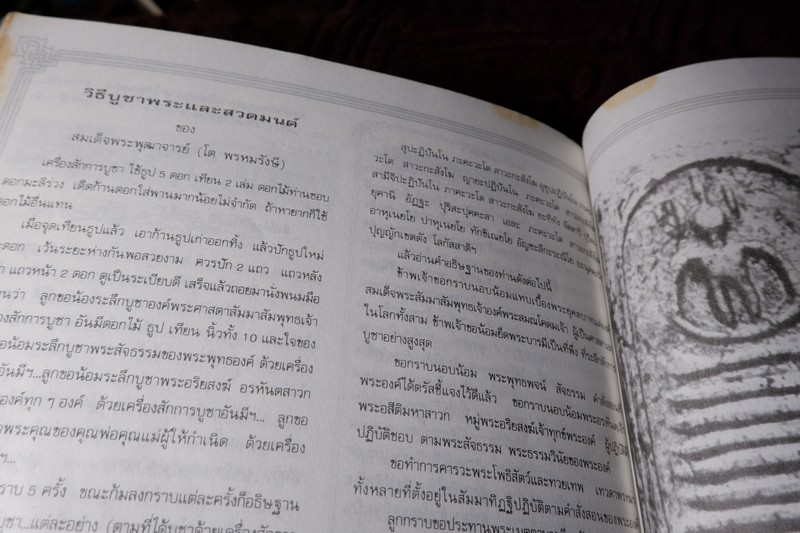 วิธีบูชาพระและสวดมนต์
ของ
สมเด็จพระพุฒาจารย์ (โต พรหมรังษี)
เครื่องสักการบูชา ใช้ธูป 5 ดอก เทียน 2 เล่ม ดอกไม้ท่านชอบ
ดอกมะลิร่วง เด็ดก้านดอกใส่พานมากน้อยไม่จำกัด ถ้าหายากก็ใช้
ดอกไม้อื่นแทน
เมื่อจุดเทียนธูปแล้ว เอาก้านธูปเก่าออกทิ้ง แล้วปักธูปใหม่
ดอก เว้นระยะห่างกันพอสวยงาม ควรปัก 2 แถว แถวหลัง
แถวหน้า 2 ดอก ดูเป็นระเบียบดี เสร็จแล้วถอยมานั่งพนมมือ
ว่า ลูกขอน้องระลึกบูชาองค์พระศาสดาสัมมาสัมพุทธเจ้า
สักการบูชา อันมีดอกไม้ ธูป เทียน นิ้วทั้ง 10 และใจของ
น้อมระลึกบูชาพระสัจธรรมของพระพุทธองค์ ด้วยเครื่อง
อันมีฯ...ลูกขอน้อมระลึกบูชาพระอริยสงฆ์ อรหันตสาวก
องค์ทุก ๆ องค์ ด้วยเครื่องสักการบูชาอันมีฯ... ลูกขอ
พระคุณของคุณพ่อคุณแม่ผู้ให้กำเนิด ด้วยเครื่อง
ฯ...
ราบ 5 ครั้ง ขณะก้มลงกราบแต่ละครั้งก็อธิษฐาน
บูชา...แต่ละอย่าง (ตามที่ได้บูชาด้วยเครื่องสักการ
สุปะฏิปันโน ภะคะวะโต สาวะกะสังโฆ อุชุปะฏิปันโน
วะโต สาวะกะสังโฆ ญายะปะฏิปันโน ภะคะวะโต
สามีจิปะฏิปันโน ภาคะวะโต สาวะกะสังโฆ ยะทิทัง
ยุคานิ อัฏฐะ ปุริสะปุคคะลา เอสะ ภะคะวะโต
อาหุเนยโย ปาหุเนยโย ทักขิเณยโย อัญชะลีกะระณีโย
ปุญญักเขตตัง โลกัสสาติฯ
แล้วอ่านคำอธิษฐานของท่านดังต่อไปนี้
ข้าพเจ้าขอกราบนอบน้อมแทบเบื้องพระยุคลบาท
สมเด็จพระสัมมาสัมพุทธเจ้าองค์พระสมณโคดมเจ้า
ในโลกทั้งสาม ข้าพเจ้าขอน้อมยึดพระบารมีเป็นที่พึ่ง
บูชาอย่างสูงสุด
ขอกราบนอบน้อม พระพุทธพจน์ สัจธรรม
พระองค์ได้ตรัสชี้แจงไว้ดีแล้ว ขอกราบนอบน้อม
พระอสีติมหาสาวก หมู่พระอริยสงฆ์เจ้าทุกข์พระองค์
ปฏิบัติชอบ ตามพระสัจธรรม พระธรรมวินัยของพระองค์
ขอทำการคารวะพระโพธิสัตว์และทวยเทพ
ทั้งหลายที่ตั้งอยู่ในสัมมาทิฏฐิปฏิบัติตามคำสั่งสอนของพระองค์
ลูกกราบขอประทานพระเมตตา